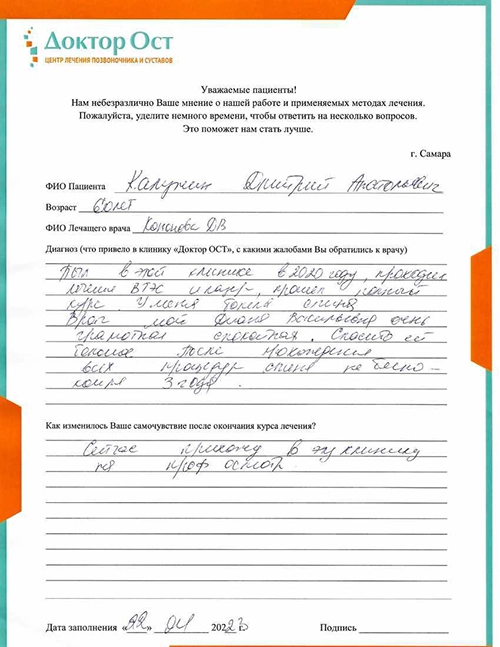 Доктор Ост
ЦЕНТР ЛЕЧЕНИЯ ПОЗВОНОЧНИКА И СУСТАВОВ
Уважаемые пациенты!
Нам небезразлично Ваше мнение о нашей работе и применяемых методах лечения.
Пожалуйста, уделите немного времени, чтобы ответить на несколько вопросов.
Это поможет нам стать лучше.
г. Самара
ФИО Пациента Дмитрий Анатольевич
Возраст 60лет
ФИО Лечащего врача ДВ
Диагноз (что привело в клинику «Доктор ОСТ», с какими жалобами Вы обратились к врачу)
Был в этой клинике в 2020 году, проходил
лечение прошел полный
курс. У меня спина
Врач мой Диана Васильевна очень
грамотная спокойная. Спасибо ей
большое после прохождения
всех процедур спина не беспо-
3 года.
Как изменилось Ваше самочувствие после окончания курса лечения?
Сейчас прихожу в эту клинику
на проф осмотр.
Дата заполнения «22» 04 2023
Подпись